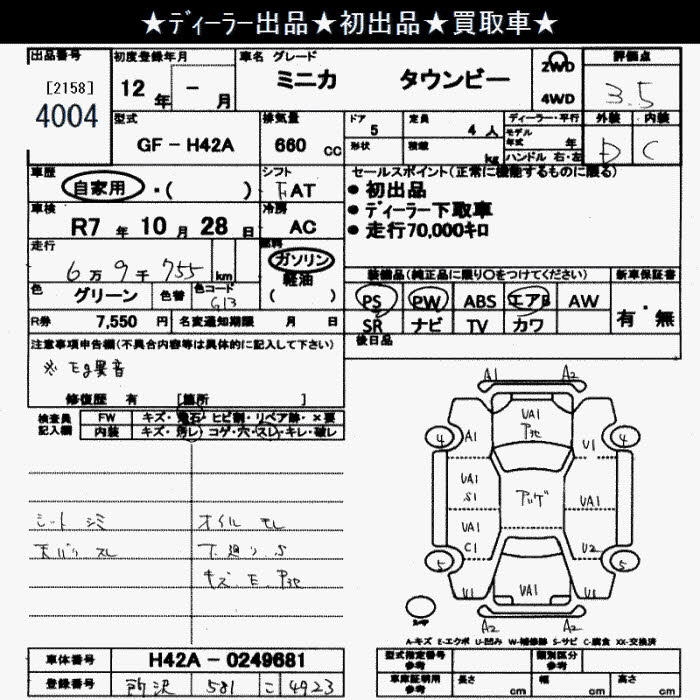 ★ディーラー出品★初出品★買取車★
出品番号 初度登録年月 車名 グレード 評価点
[2158] 12年 -月 ミニカ タウンビー 2WD 3.5
4004 4WD
型式 排気量 ドア 定員 ディーラー・平行 外装 内装
GF-H42A 660cc 5 4人 モデル年式 年 D C
形状 積載 kg ハンドル 右・左
車歴 シフト セールスポイント(正常に機能するものに限る)
自家用・( ) FAT ●初出品
車検 冷房 ●ディーラー下取車
R7年10月28日 AC ●走行70,000キロ
走行 燃料
6万9千755km ガソリン 装備品(純正品に限り○をつけてください) 新車保証書
色 グリーン 色替 色コード G13 軽油 ( ) PS PW ABS エアB AW 有・無
R券 7,550円 名変通知期限 月 日 SR ナビ TV カワ
注意事項申告欄(不具合内容等は具体的に記入して下さい) 後日品
※ Eg異音
修復歴 有 [箇所 ]
検査員記入欄 FW キズ・飛石・ヒビ割・リペア跡・×要
内装 キズ・汚レ・コゲ・穴・スレ・キレ・破レ
シート シミ オイル モレ
天バリ スレ 下廻り S
キズ E
A1 A2
UA1
4 A1 U1 4
UA1 S1 UA1
UA1 C1 U2
5 U1 UA1 U1 5
A2 A2
A-キズ E-エクボ U-凹み W-補修跡 S-サビ C-腐食 XX-交換済
車体番号 H42A-0249681 型式指定番号 参考 類別区分 参考
登録番号 所沢 581 こ 4923 車庫証明用 参考 長さ cm 幅 cm 高さ cm